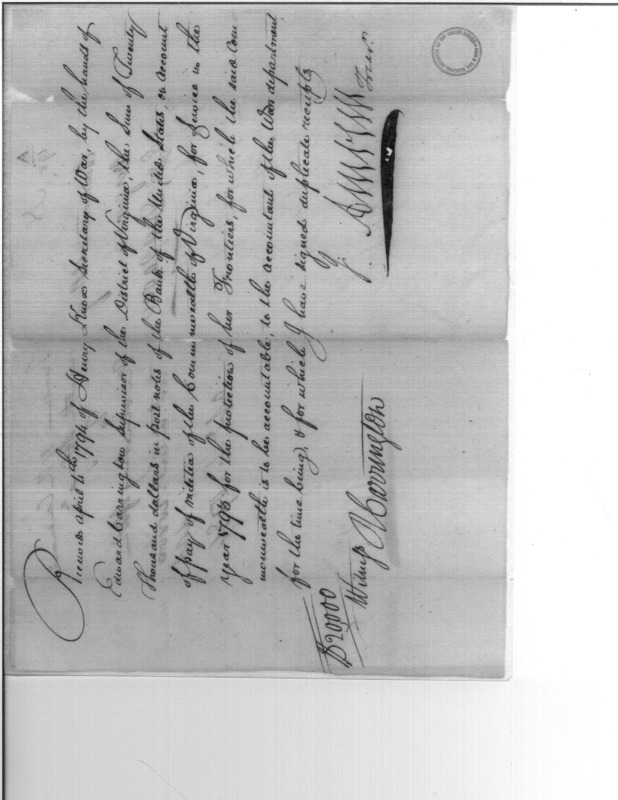 Received April 4th 1794 of Henry Knox Secretary of War, by the hands of
Edward Carrington Supervisor of the District of Virginia, the Sum of Twenty
Thousand dollars in post notes of the Bank of the United States, on account
of pay of Militia of the Commonwealth of Virginia, for Service in the
year 1793 for the protection of her Frontiers, for which the said Com-
monwealth is to be accountable, to the accountant of the War department,
for the time being, & for which I have signed duplicate receipts
$20,000
Witness
Carrington
J. Ambler Treasr.